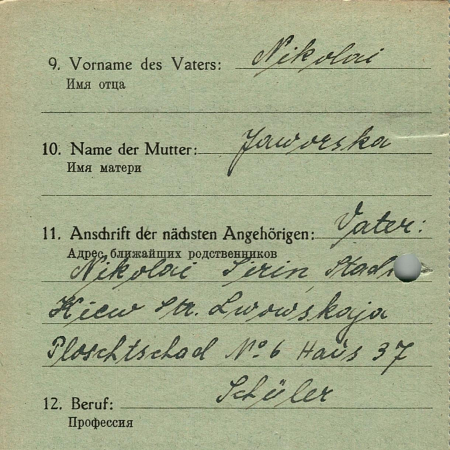 9. Vorname des Vaters: Nikolai
Имя отца
10. Name der Mutter: Jaworska
Имя матери
11. Anschrift der nächsten Angehörigen: Vater:
Адрес ближайших родственников
Nikolai
Kiew Str. Lwowskaja
Ploschtschad No 6 Haus 37
12. Beruf: Schüler
Профессия